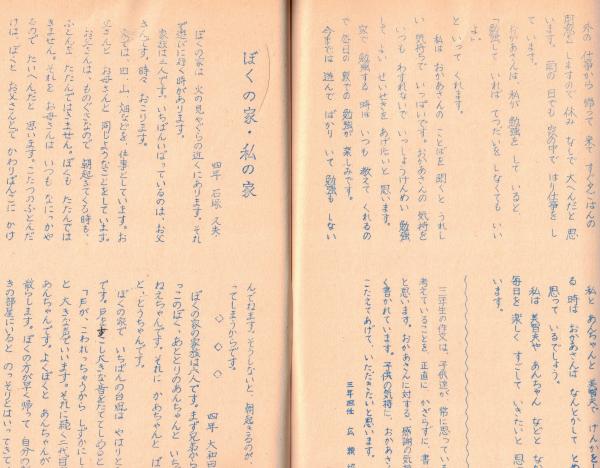 外の仕事から帰って来てすぐ夕ごはんの
います。雨の日でも家の中ではり仕事をし
ています。
おかあさんは私が勉強をしていると
「勉強していればてつだいをしなくてもいい
よ」
といってくれます。
私はおかあさんのことばを聞くとうれし
い気持ちでいっぱいです。おかあさんの気持を
いつもわすれないでいっしょうけんめい勉強
してよいせいせきをあげたいと思います。
家で勉強する時はいつも教えてくれるの
で毎日の家での勉強が楽しみです。
今までは遊んでばかりいて勉強もしない
私とあんちゃんと美智夫でけんかを
る時はおかあさんはなんとかしてとめ
思っているでしょう。
私は美智夫やあんちゃんなどとな
毎日を楽しくすごしていきたいと思
います。
三年生の作文は、子供達が常に思っている
考えていることを正直にかざらずに、書
と思います。おかあさんに対する、感謝の気
く書かれています。子供の気持に、おかあさ
こたえてあげて、いただきたいと思います。
三年担任 広瀬
ぼくの家・私の家
四年 石塚久夫
ぼくの家は火の見やぐらの近くにあります。それ
で遊びに行く時があります。
家族は三人です。いちばんいばっているのは、お父
さんです。時々おこります。
家では、田、山、畑などを仕事としています。お
父さんとお母さんと同じようなことをしています。
お父さんは、ものぐさなので朝起きてくる時も、
ふとんをたたんではきません。ぼくもたたんでは
きません。それをお母さんはいつもなにかにか
るのでたいへんだと思います。こたつのふとんだ
けは、ぼくとお父さんとでかわりばんこにかけ
んでねます。そうしないと朝起きるのが、
ってしまうからです。
◇ ◇ ◇
四年 大和田
ぼくの家の家族は八人です。まず兄弟から
っこのぼく、あととりのあんちゃんといち
ねえちゃんです。それにかあちゃんとば
と、とうちゃんです。
ぼくの家でいちばんの台風はやはりと
です。戸をすこし大きな音をたててしめると
「戸が、こわれっちゃうからしずかにし
と大きな声でいいます。それに続く二代目
あんちゃんです。よくぼくとあんちゃんが
散らします。ぼくの方が早く帰って自分の
きの部屋にいるとのっそりとはいってきて